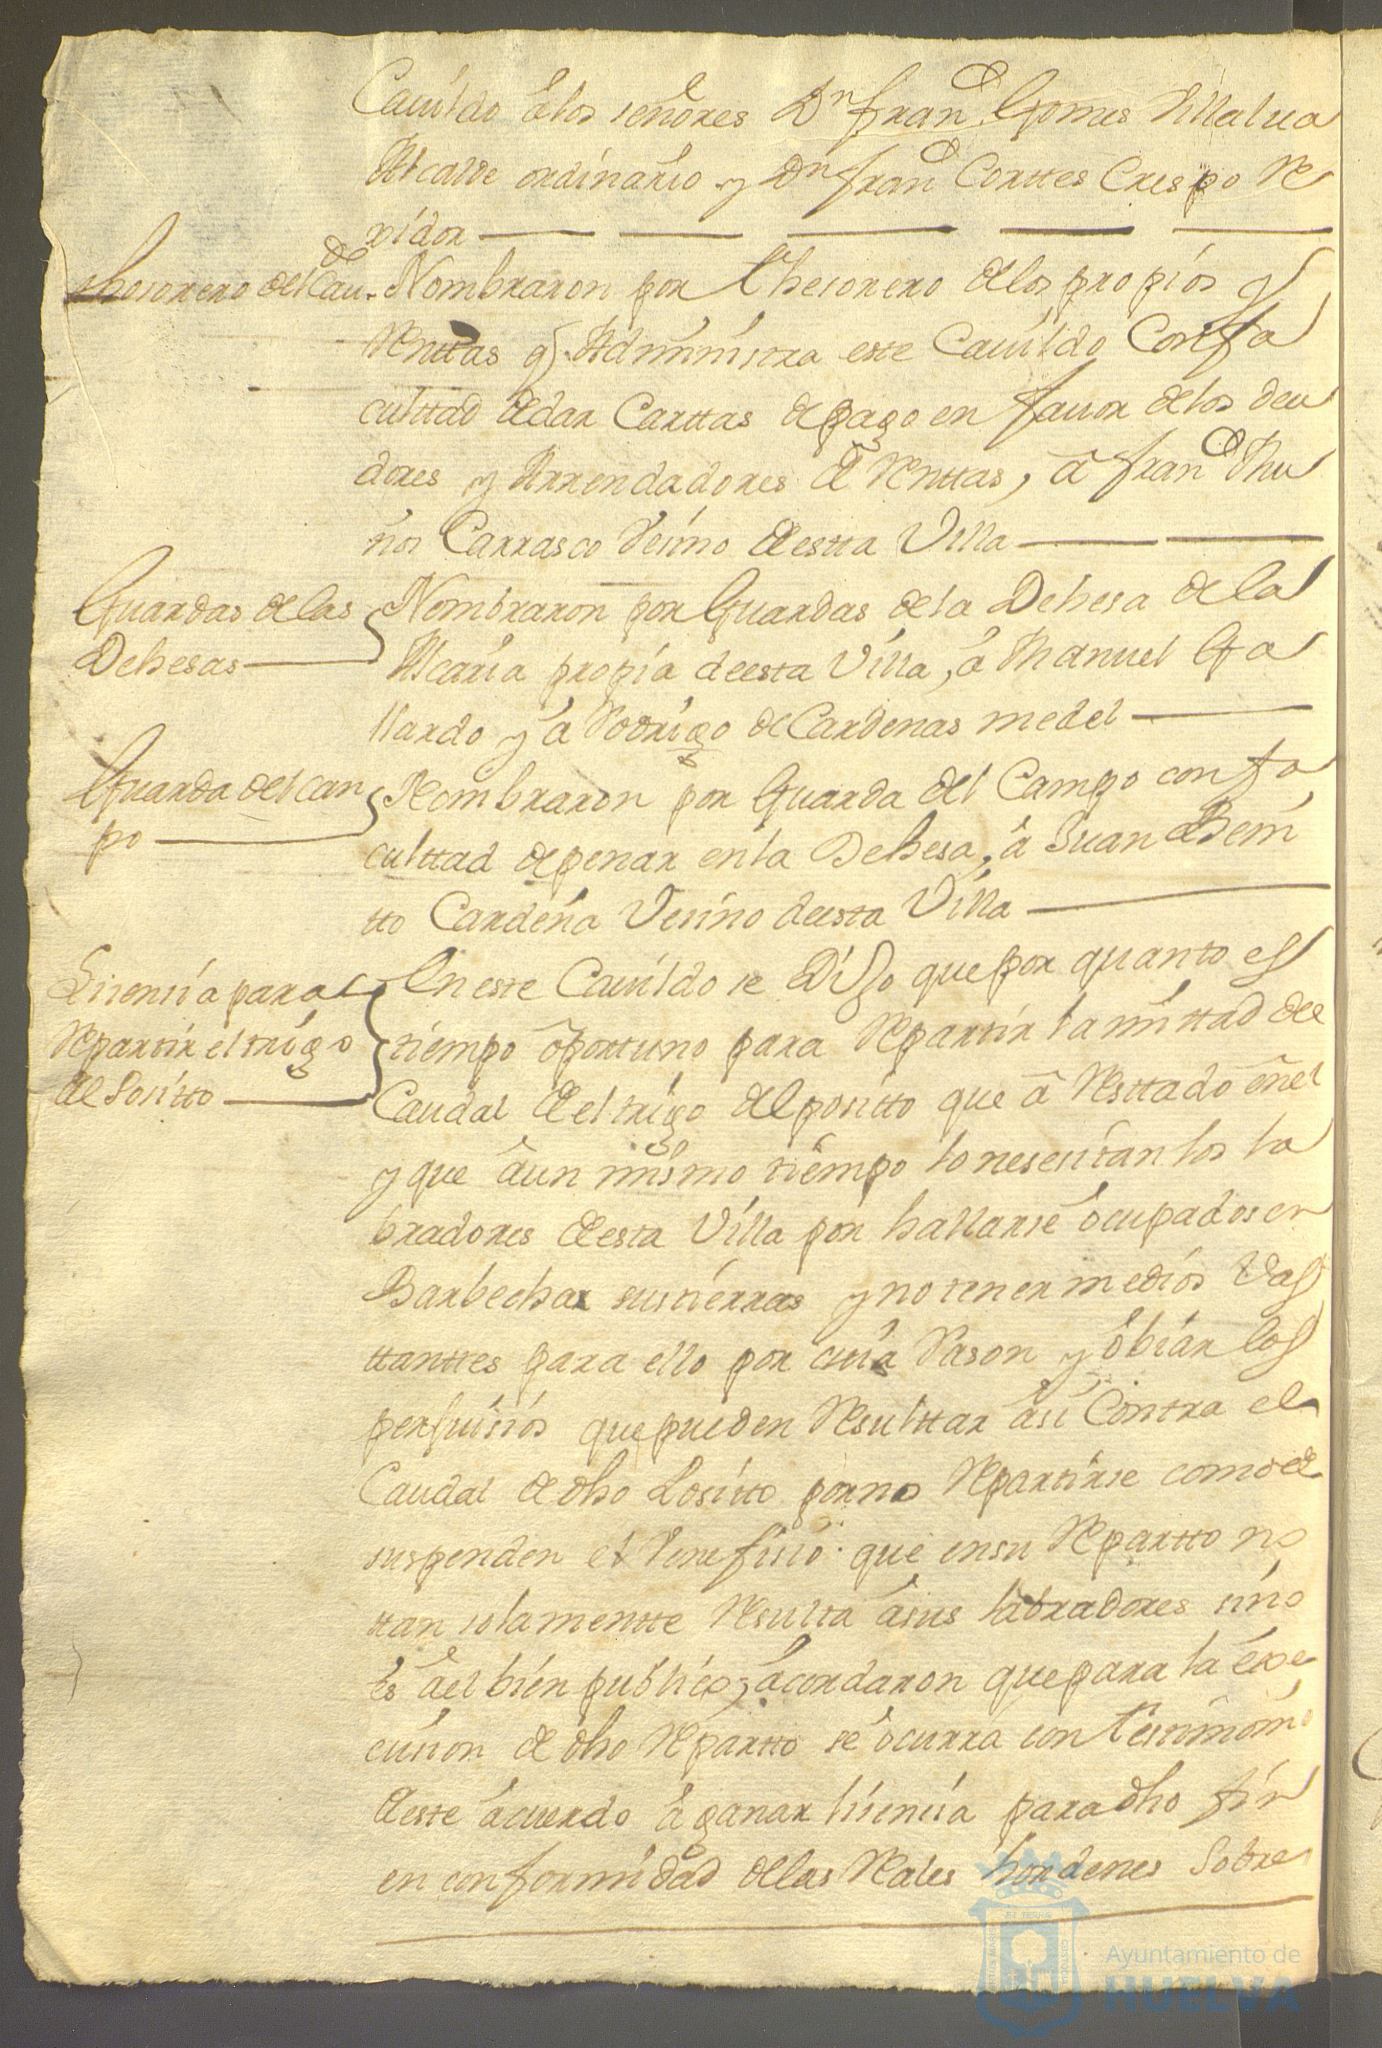 Cauildo âlos señores Dn. franco. Gomes Villalua
Alcalde ordinario y Dn. franco. Corttes Crespo Re
xidor
thesorero del Cauo. Nombraron por thesorero delos propios y
Renttas q. Administra este Cauildo Con fa
culttad dedar Carttas de pago en fauor delos deu
dores y Arrendadores de Renttas, â franco. Mu
ños Carrasco Vesino deestta Villa
Guardas de las
Dehesas
Nombraron por Guardas dela Dehesa dela
Alcaria propia deesta Villa, â Manuel Ga
llardo y â Rodrigo de Cardenas medel
Guarda del can
po
Nombraron por Guarda del Campo con fa
culttad depenar enla Dehesa, â Juan Beni
tto Cardeña Vesino deesta Villa
Lisensia para
Repartir el trigo
del Positto
En este Cauildo se Dijo que por quanto es
tiempo ôportuno para Repartir la mittad del
Caudal de el trigo del positto que â Resttado ên el
y que âun mismo tiempo lo nesesitan los la
bradores deesta Villa por hallarse ôcupados en
Barbechar sus tierras y no tener medios Vas
ttanttes para ello por cuia Rason y ôbiar los
perjuisios que pueden Resulttar âsi Contra el
Caudal de dho Positto por no Repartirse como de
suspenden el Venefisio que en su Repartto no
ttan solamentte Resulta âsus labradores sino
es âel bien publico, âcordaron que para la êxe
cusion de dho Repartto se ôcurra con testimonio
deeste âcuerdo â ganar lisensia para dho fin
en conformidad delas Reales hordenes Sobre
Ayuntamiento de
HUELVA